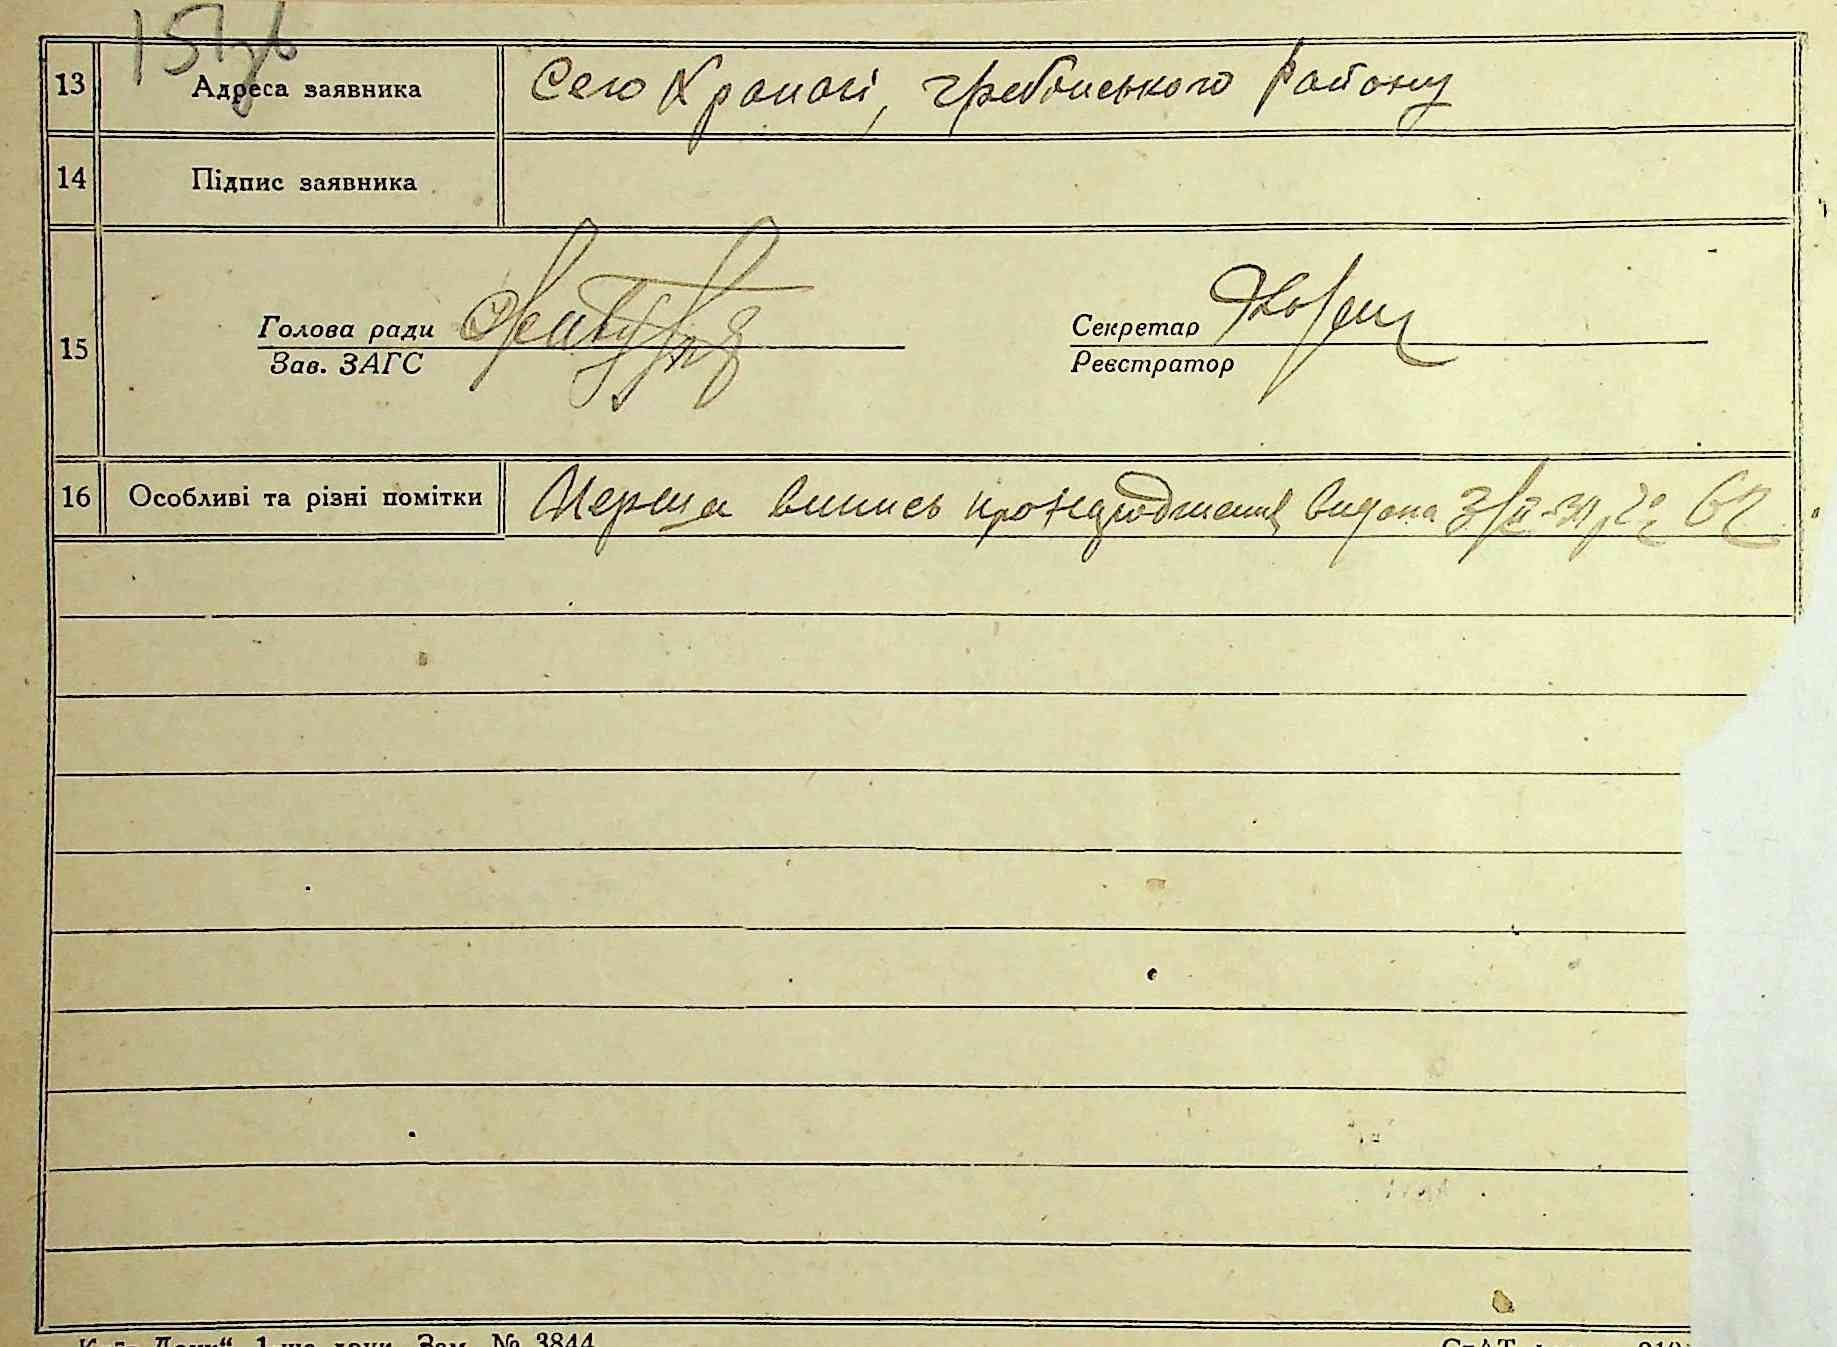 13 Адреса заявника Село Храпачі, гребінського району
14 Підпис заявника
15 Голова ради Секретар
Зав. ЗАГС Реєстратор
16 Особливі та різні помітки Перша випись про народження видана
1-ша друк. Зам. № 3844